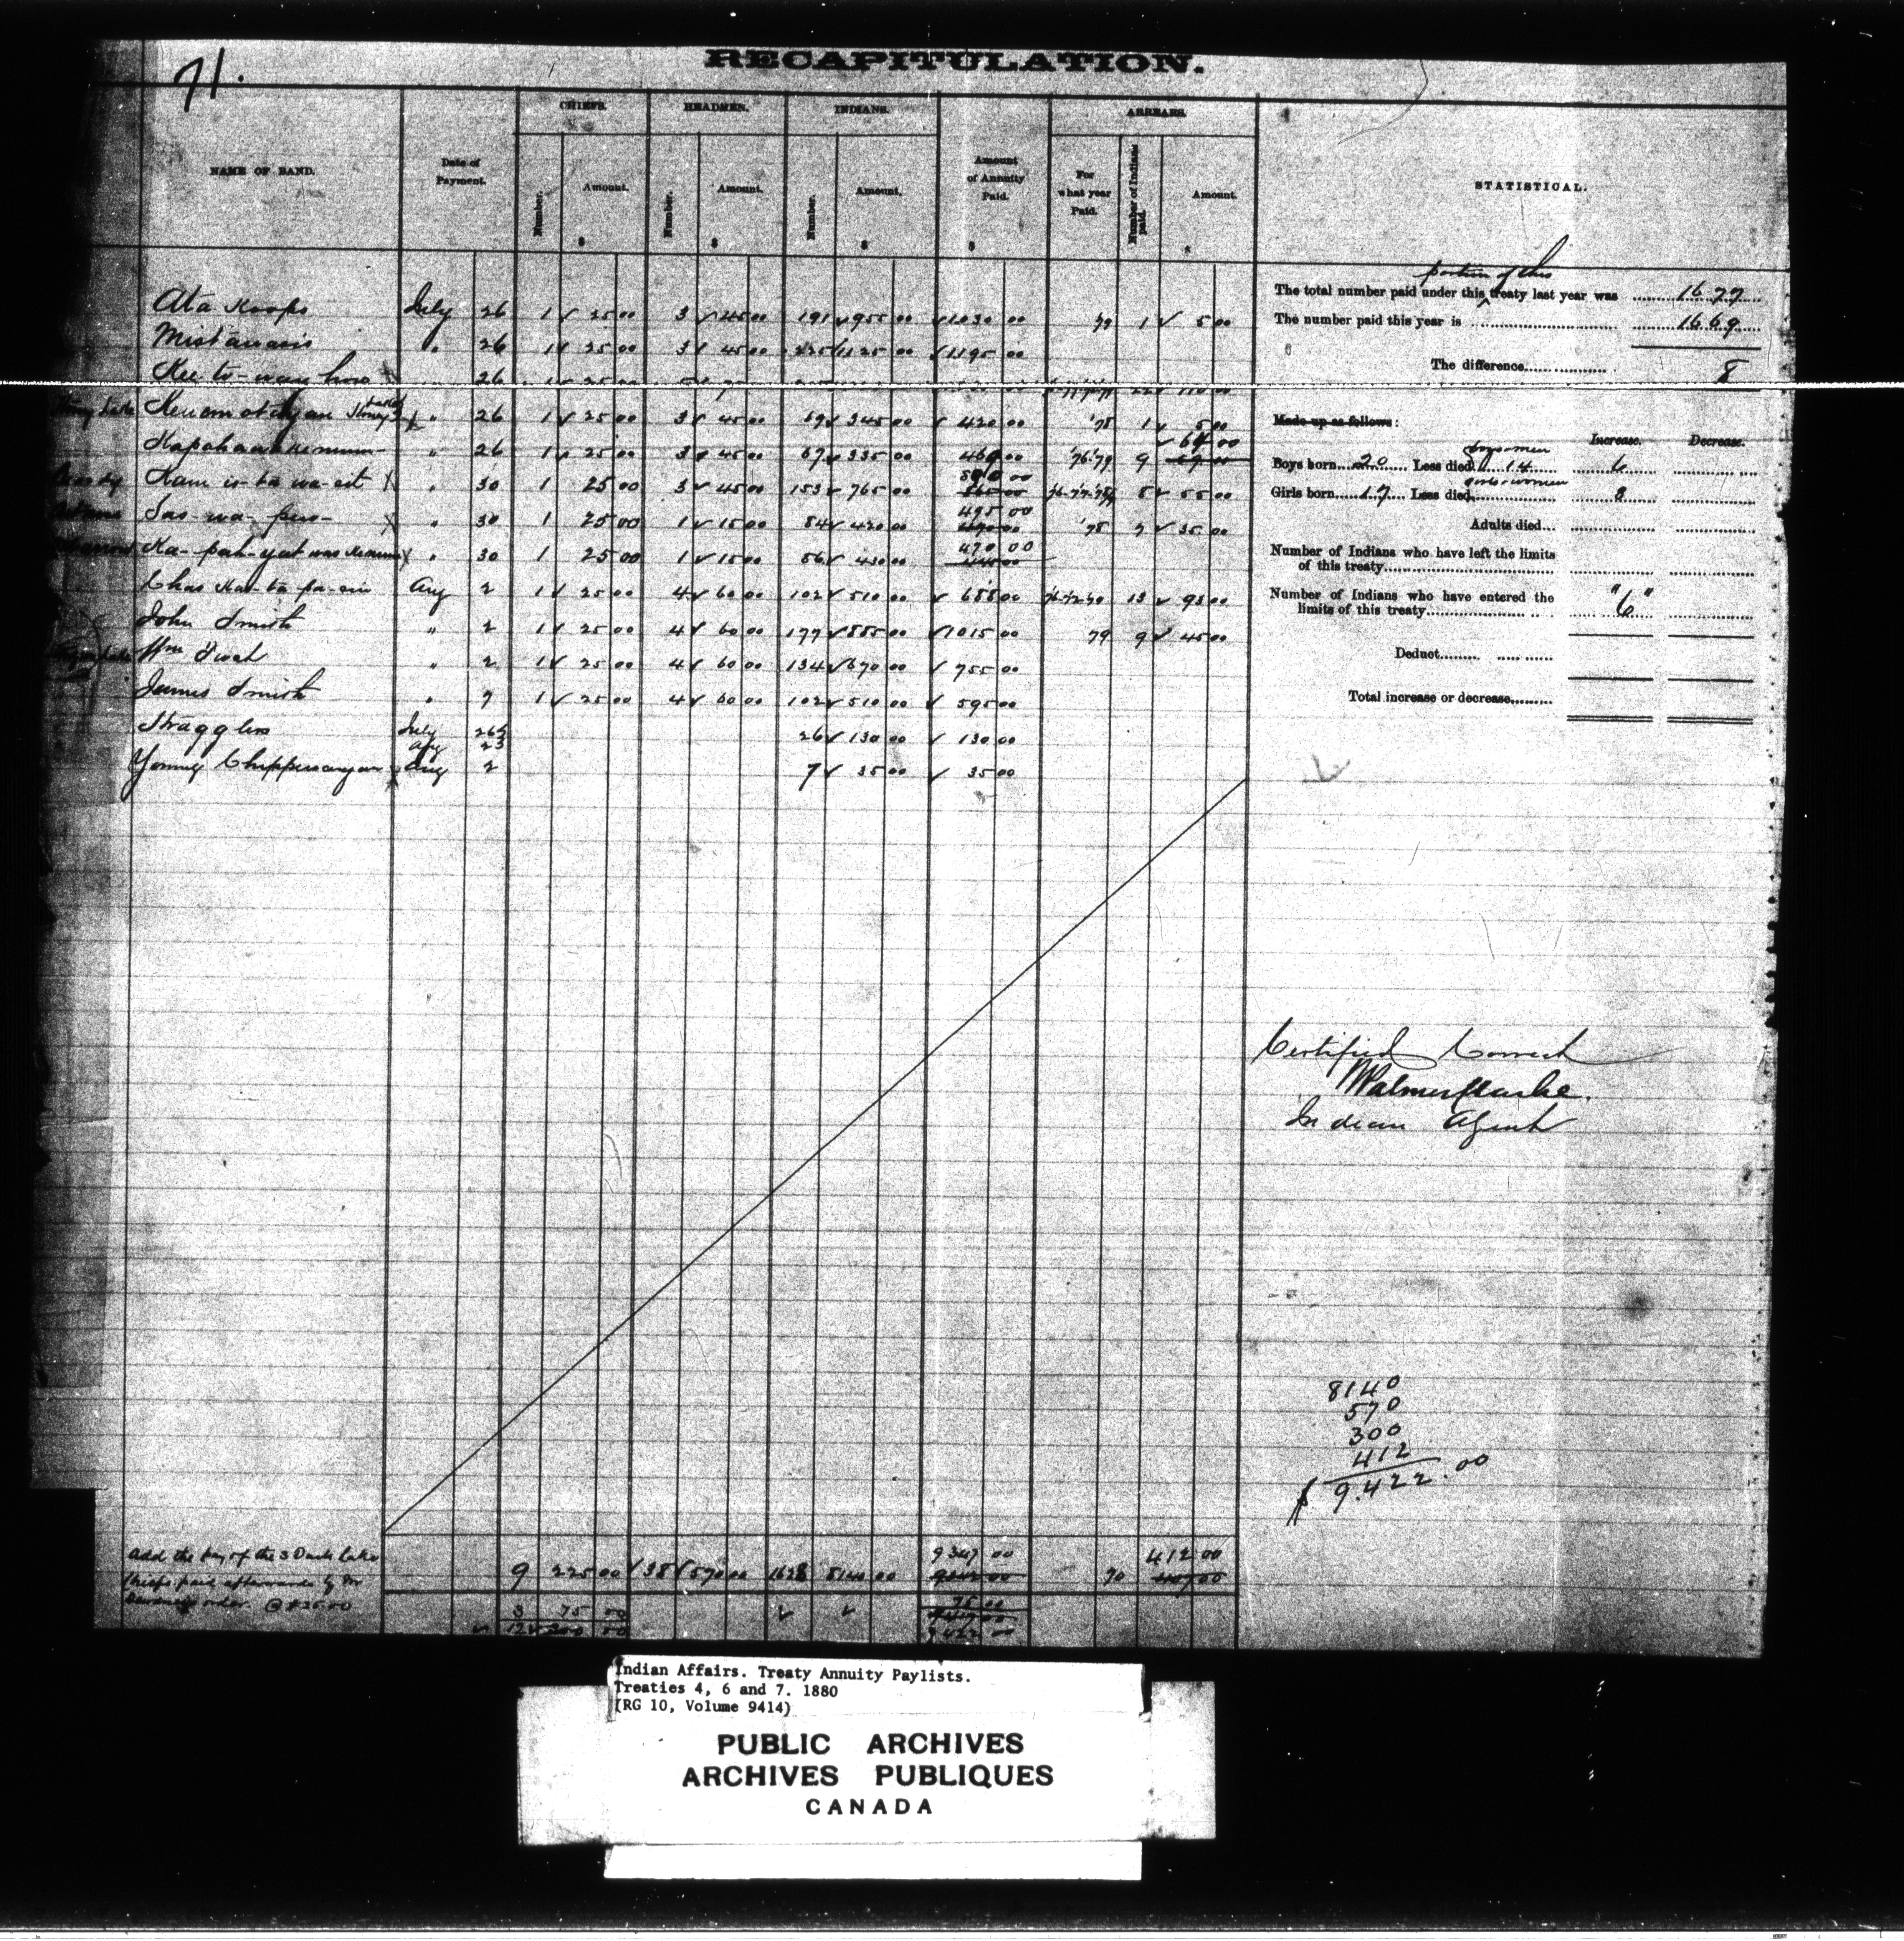 71.
RECAPITULATION.
NAME OF BAND.
Date of Payment.
CHIEFS.
Number.
Amount.
$
HEADMEN.
Number.
Amount.
$
INDIANS.
Number.
Amount.
$
Amount of Annuity Paid.
$
ARREARS.
For what year Paid.
Number of Indians paid.
Amount.
STATISTICAL.
Ata Koops July 26 1 25 00 3 45 00 191 955 00 1030 00 79 1 5 00
Mistawasis " 26 1 25 00 3 45 00 225 1125 00 1195 00
Kee-to-way-how 26 1 25 00
" 26 1 25 00 3 45 00 69 345 00 420 00 '78 1 5 00
" 26 1 25 00 3 45 00 67 335 00 460 00 '76-'79 9 64 00
" 30 1 25 00 3 45 00 153 765 00 5 55 00
Sas-wa-pew " 30 1 25 00 1 15 00 84 420 00 495 00 '78 7 35 00
" 30 1 25 00 1 15 00 86 430 00 470 00
Chas Aug 2 1 25 00 4 60 00 102 510 00 688 00 13 93 00
John Smith " 2 1 25 00 4 60 00 177 885 00 1015 00 79 9 45 00
Wm Twat " 2 1 25 00 4 60 00 134 670 00 755 00
James Smith " 7 1 25 00 4 60 00 102 510 00 595 00
Stragglers July 26 & Aug 23 26 130 00 130 00
Young Chippewayan Aug 2 7 35 00 35 00
portion of this
The total number paid under this treaty last year was 1677
The number paid this year is 1669
The difference 8
Made up as follows:
Increase. Decrease.
Boys born 20 Less died boys & men 14 6
Girls born 17 Less died girls & women 8
Adults died...
Number of Indians who have left the limits
of this treaty
Number of Indians who have entered the
limits of this treaty "6"
Deduct
Total increase or decrease
Certified Correct
Indian Agent
8140
570
300
412
$ 9.422.00
Add the pay of the 3 Duck Lake
Chiefs paid afterwards by
order. @ $25.00
9 225 00 38 570 00 1628 8140 00 9347 00 70 412 00
3 75 00 75 00
12 300 00 9422 00
Indian Affairs. Treaty Annuity Paylists.
Treaties 4, 6 and 7. 1880
(RG 10, Volume 9414)
PUBLIC ARCHIVES
ARCHIVES PUBLIQUES
CANADA